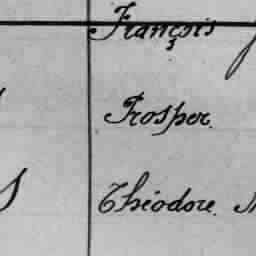 François
Prosper.
Théodore.